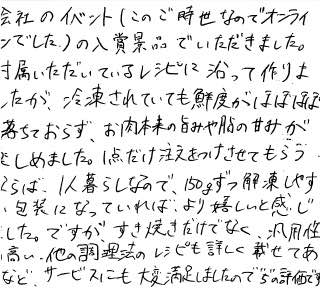 会社のイベント(このご時世なのでオンライ
ンでした。)の入賞景品でいただきました。
付属いただいているレシピに沿って作りま
したが、冷凍されていても鮮度がほぼほぼ
落ちておらず、お肉本来の旨みや脂の甘みが
楽しめました。1点だけ注文をつけさせてもらう
ならば、1人暮らしなので、150gずつ解凍しやす
い包装になっていれば、より嬉しいと感じ
ました。ですが、すき焼きだけでなく、汎用性
高い、他の調理法のレシピも詳しく載せてあ
など、サービスにも大変満足しましたので"5"の評価です